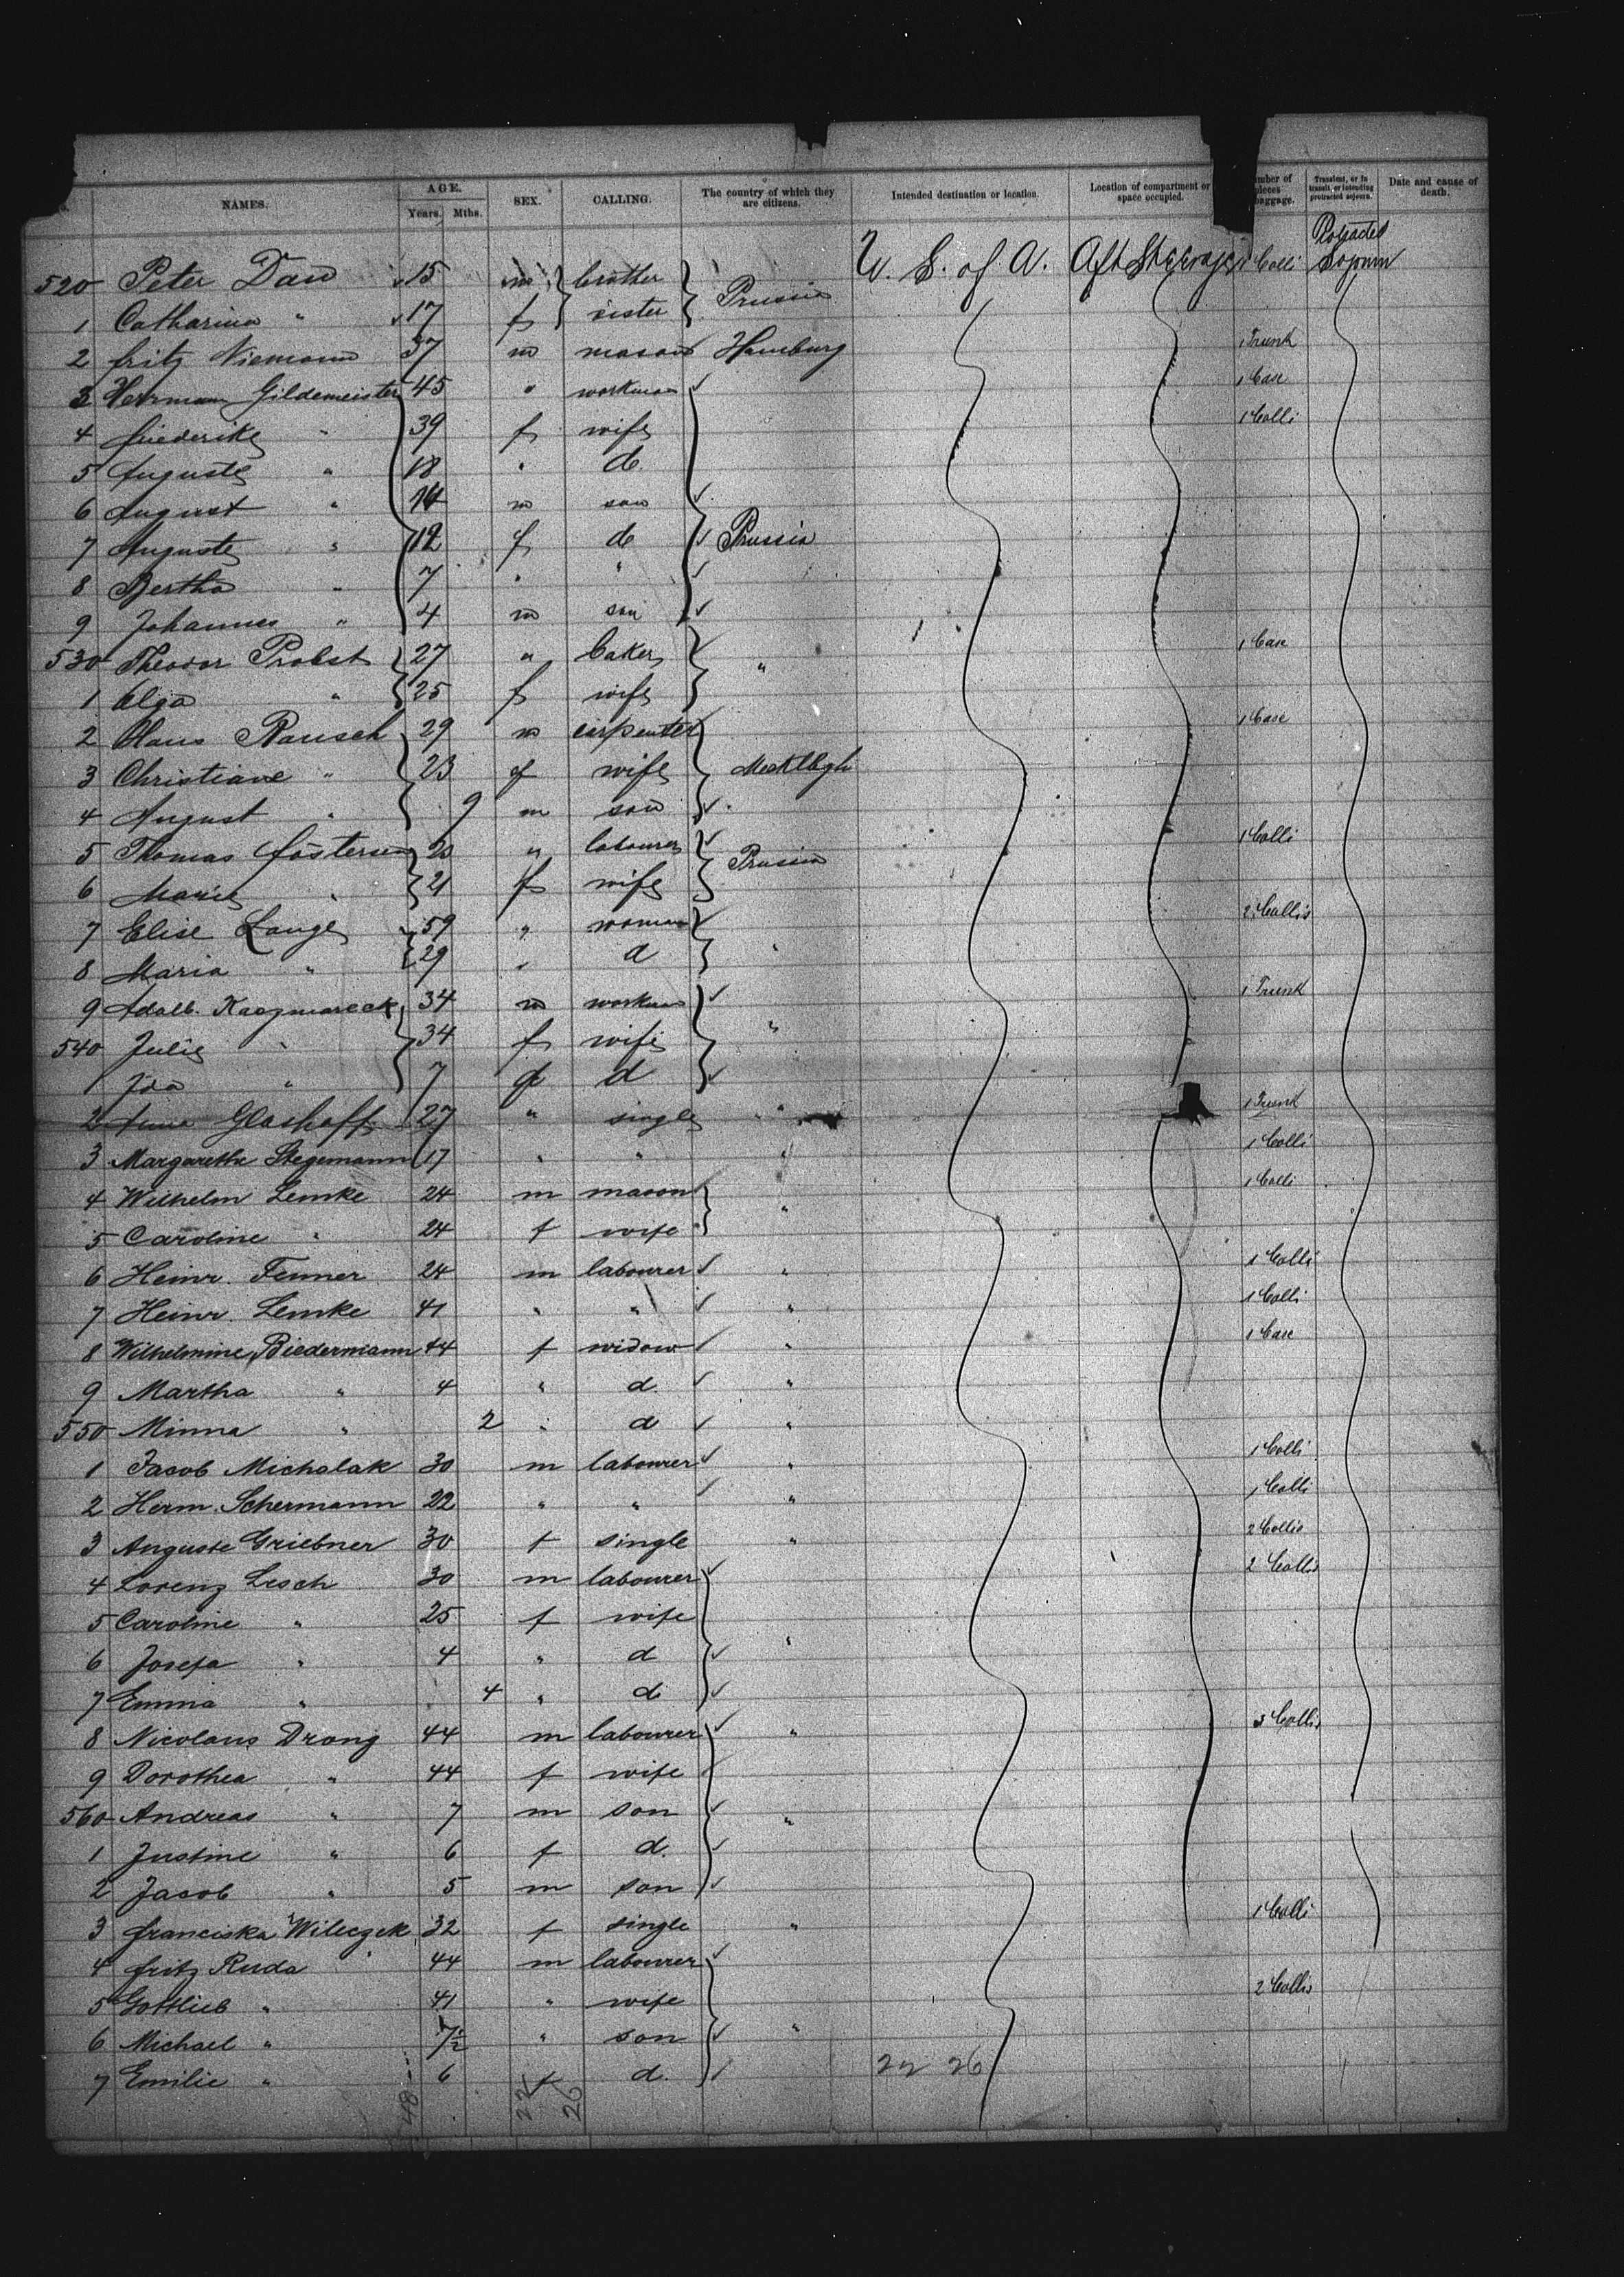 NAMES. AGE. Years. Mths. SEX. CALLING. The country of which they are citizens. Intended destination or location. Location of compartment or space occupied. mber of pieces baggage. Transient, or in transit, or intending protracted sojourn. Date and cause of death.
520 Peter Daw 15 m brother Prussia U. S. of A. Aft Steerage 1 Colli
1 Catharina " 17 f sister
2 Fritz Niemann 37 m mason Hamburg 1 Trunk
3 Herman Gildemeister 45 " workman 1 Case
4 Friederike " 39 f wife 1 Colli
5 Auguste " 18 " d
6 August " 14 m son
7 Auguste " 12 f d Prussia
8 Bertha " 7 " "
9 Johannes " 4 m son
530 Theodor Probst 27 " baker " 1 Case
1 Olga " 25 f wife
2 Claus Rausch 29 m carpenter 1 Case
3 Christiane " 23 f wife Mecklbgh
4 August " 9 m son
5 Thomas 20 " labourer Prussia 1 Colli
6 Marie " 21 f wife
7 Elise Lange 59 " woman " 2 Collis
8 Maria " 29 " d
9 Adalb. Kaczmareck 34 m workman " 1 Trunk
540 Julie " 34 f wife
1 Ida " 7 f d
2 Anna Glashoff 27 " single " 1 Trunk
3 Margarethe Stegemann 17 " " " 1 Colli
4 Wilhelm Lemke 24 m mason " 1 Colli
5 Caroline " 24 f wife
6 Heinr. Fenner 24 m labourer " 1 Colli
7 Heinr. Lemke 41 " " " 1 Colli
8 Wilhelmine Biedermann 44 f widow " 1 Case
9 Martha " 4 " d "
550 Minna " 2 " d "
1 Jacob Michalak 30 m labourer " 1 Colli
2 Herm. Schermann 22 " " " 1 Colli
3 Auguste Griebner 30 f single " 2 Collis
4 Lorenz Lesch 30 m labourer 2 Collis
5 Caroline " 25 f wife
6 Josefa " 4 " d "
7 Emma " 4 " d
8 Nicolaus Drong 44 m labourer " 3 Collis
9 Dorothea " 44 f wife
560 Andreas " 7 m son "
1 Justine " 6 f d.
2 Jacob " 5 m son
3 Franciska Wilczek 32 f single " 1 Colli
4 Fritz Ruda 44 m labourer
5 Gottlieb " 41 " wife 2 Collis
6 Michael " 7½ " son "
7 Emilie " 6 f d. 22 26
48 22 26